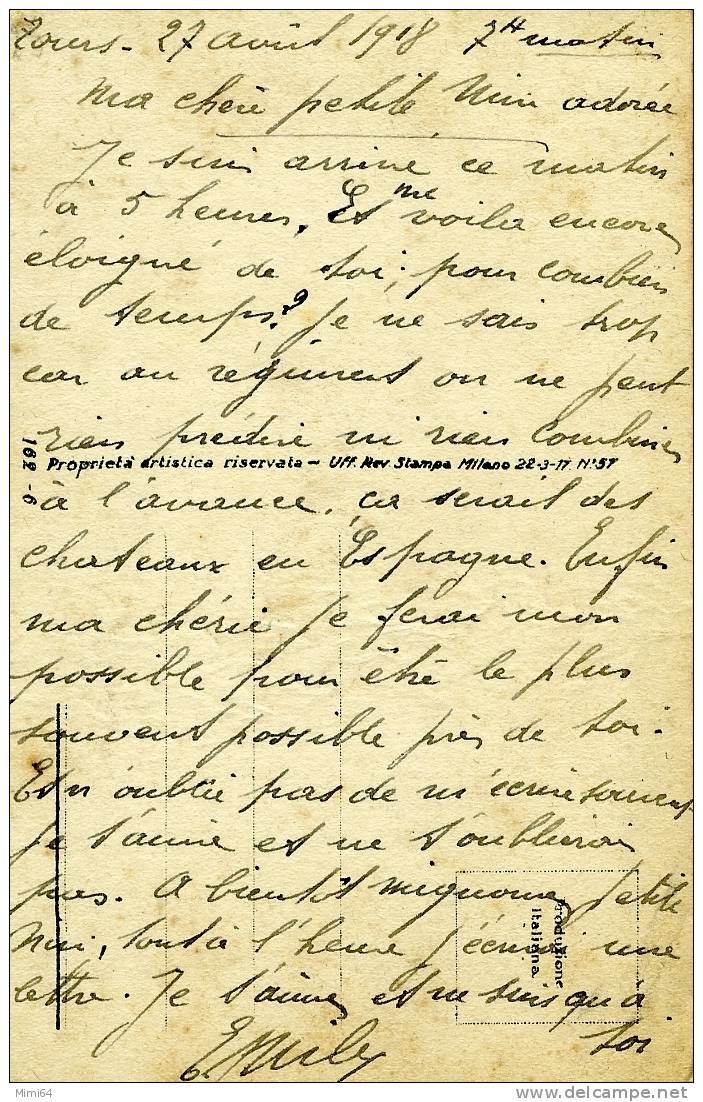 Tours - 27 août 1918 7H matin
Ma chère petite Nini adorée
Je suis arrivé ce matin
à 5 heures. Et me voila encore
éloigné de toi, pour combien
de temps? Je ne sais trop
car au régiment on ne peut
rien prédire ni rien combiner
162-6
Proprietà artistica riservata - Uff. Rev. Stampa Milano 22-3-17 N° 57
à l'avance, ça serait des
chateaux en Espagne. Enfin
ma chérie je ferai mon
possible pour être le plus
souvent possible près de toi.
Et n'oublie pas de m'écrire souvent
Je t'aime et ne t'oublierai
pas. A bientôt mignonne petite
Nini, tout à l'heure j'écrirai une
lettre. Je t'aime et ne suis qu'à
toi
Produzione
Italiana
Mimi64
delcampe.net